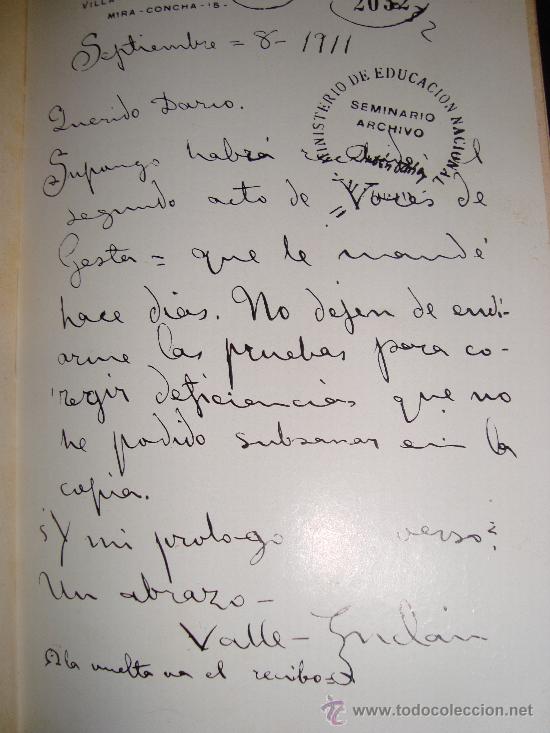 VILLA
MIRA-CONCHA-15-
2052
2
Septiembre = 8 - 1911
MINISTERIO DE EDUCACION NACIONAL
SEMINARIO
ARCHIVO
Querido Dario.
Supongo habrá el
segundo acto de "Voces de
Gesta = que le mandé
hace dias. No dejen de envi-
arme las pruebas para co-
regir deficiencias que no
he podido subsanar en la
copia.
¿Y mi prologo verso?
Un abrazo -
Valle-Inclán
A la vuelta va el recibo
www.todocoleccion.net